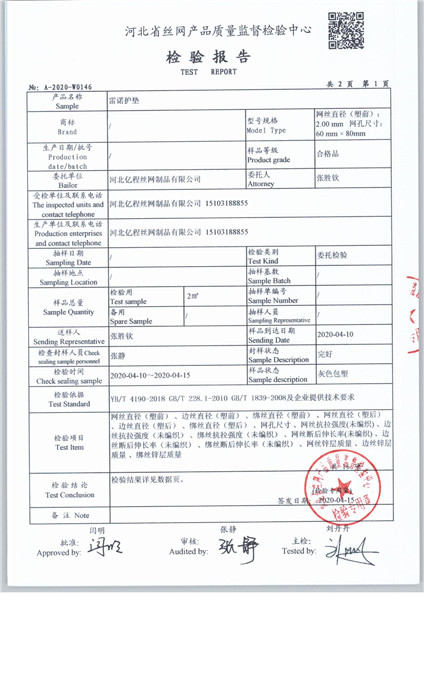 河北省丝网产品质量监督检验中心
检验报告
TEST REPORT
No: A-2020-W0146 共 2 页 第 1 页
产品名称 雷诺护垫
Sample
商标 / 型号规格 网丝直径（塑前）:
Brand Model Type 2.00 mm 网孔尺寸:
60 mm × 80mm
生产日期/批号 / 样品等级 合格品
Production Product grade
date/batch
委托单位 河北亿程丝网制品有限公司 委托人 张胜钦
Bailor Attorney
受检单位及联系电话
The inspected units and 河北亿程丝网制品有限公司 15103188855
contact telephone
生产单位及联系电话
Production enterprises 河北亿程丝网制品有限公司 15103188855
and contact telephone
抽样日期 / 检验类别 委托检验
Sampling Date Test Kind
抽样地点 / 抽样基数 /
Sampling Location Sample Batch
样品总量 检验用 2㎡ 抽样单编号 /
Sample Quantity Test sample Sample Number
备用 / 抽样人员 /
Spare Sample Sampling Representative
送样人 张胜钦 样品到达日期 2020-04-10
Sending Representative Sending Date
检查封样人员Check 张静 封样状态 完好
sealing sample personnel Sample Description
检验时间 2020-04-10～2020-04-15 样品状态 灰色包塑
Check sealing sample Sample description
检验依据 YB/T 4190-2018 GB/T 228.1-2010 GB/T 1839-2008及企业提供技术要求
Test Standard
检验项目 网丝直径（塑前）、边丝直径（塑前）、绑丝直径（塑前）、网丝直径（塑后）
Test Item 、边丝直径（塑后）、绑丝直径（塑后）、网孔尺寸、网丝抗拉强度(未编织)、边
丝抗拉强度（未编织）、绑丝抗拉强度（未编织）、网丝断后伸长率(未编织)、边
丝断后伸长率（未编织）、绑丝断后伸长率（未编织）、网丝锌层质量、边丝锌层
质量、绑丝锌层质量
检验结论 检验结果详见数据页。
Test Conclusion (检验专用章)
签发日期: 2020-04-15
备 注 Note
闫明 张静 刘丹丹
批准: 审核: 主检:
Approved by: 闫明 Audited by: 张静 Tested by: